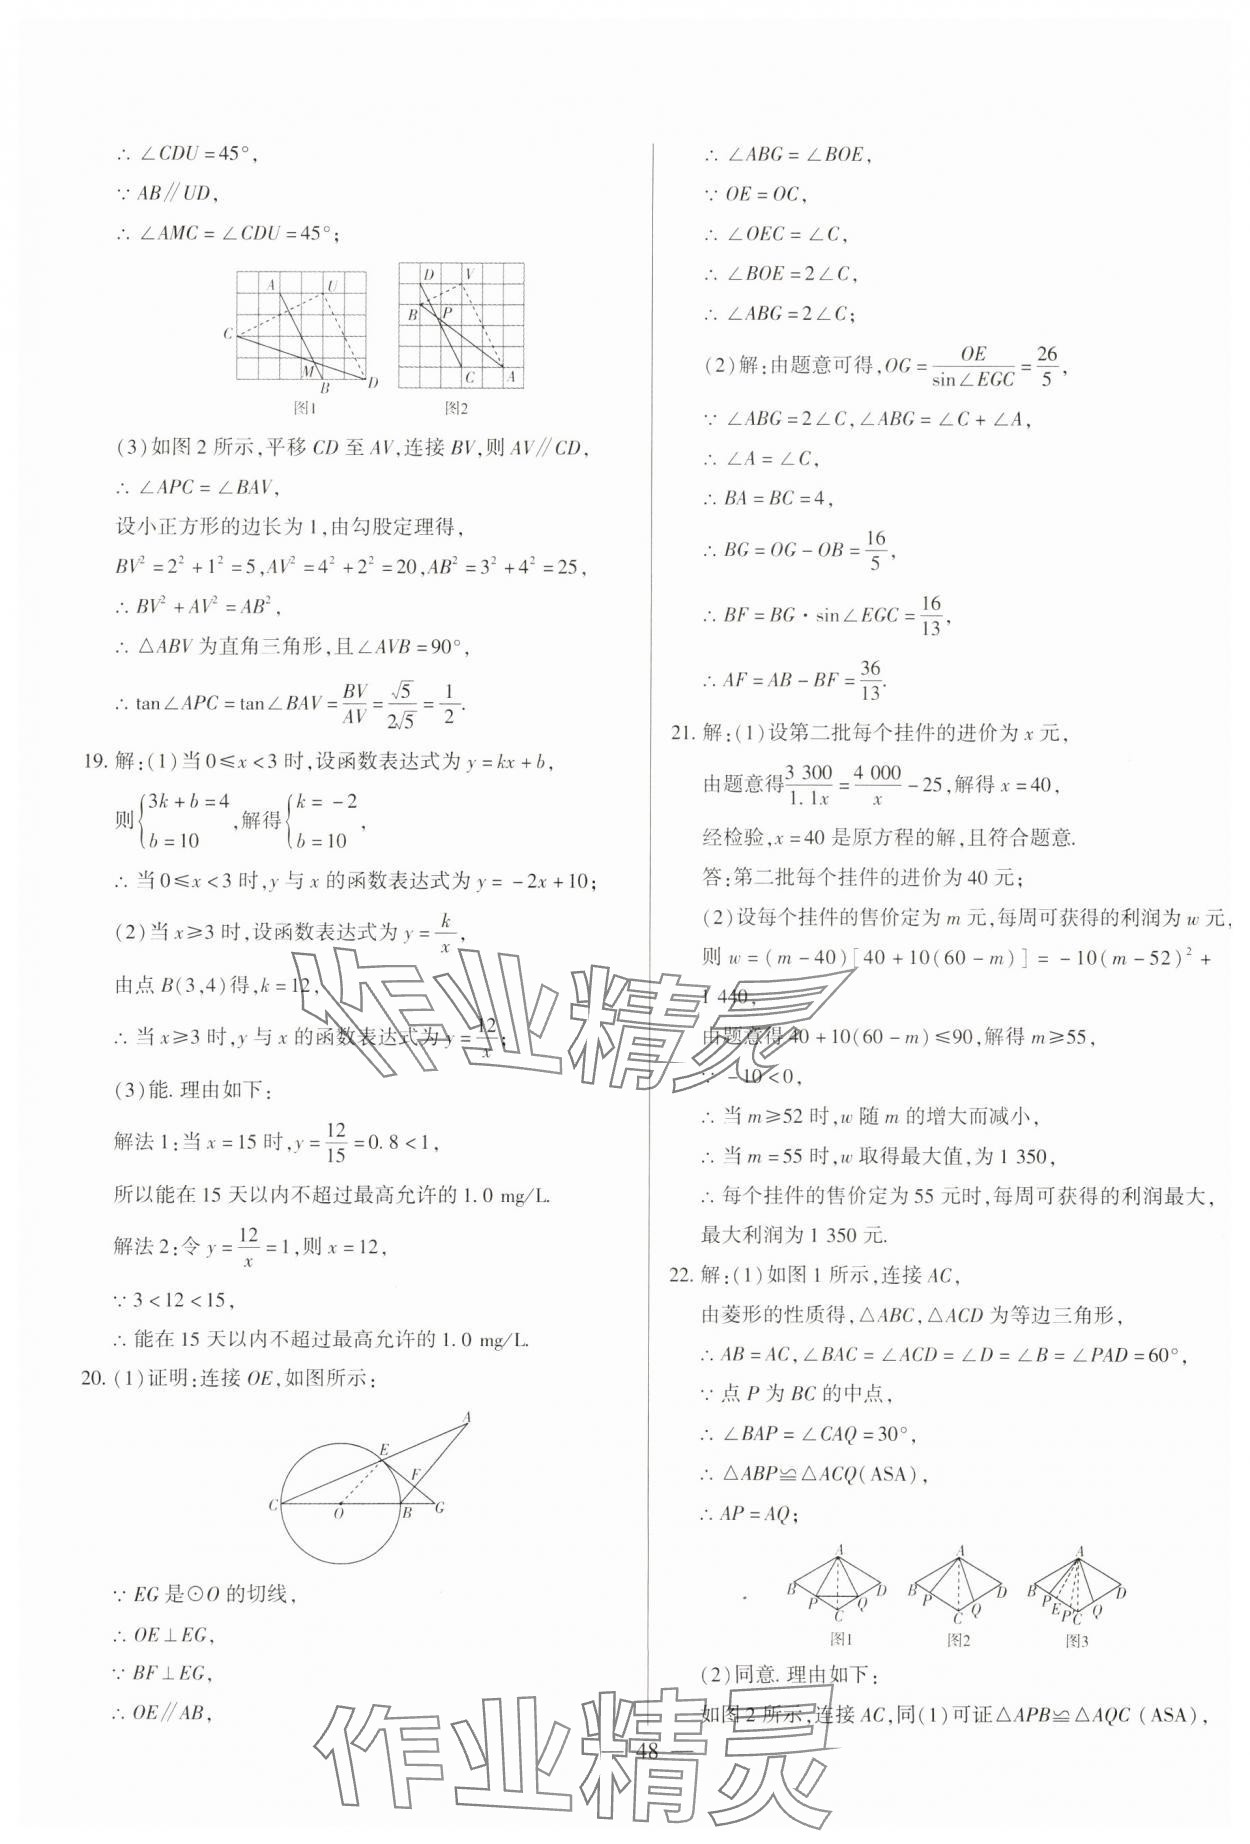 ∴ ∠CDU=45°,
∵ AB∥UD,
∴ ∠AMC=∠CDU=45°;
A U C M B D
图1
D V B P C A
图2
(3)如图2所示,平移CD至AV,连接BV,则AV∥CD,
∴ ∠APC=∠BAV,
设小正方形的边长为1,由勾股定理得,
BV²=2²+1²=5,AV²=4²+2²=20,AB²=3²+4²=25,
∴ BV²+AV²=AB²,
∴ △ABV为直角三角形,且∠AVB=90°,
∴ tan∠APC=tan∠BAV=BV/AV=√5/2√5=1/2.
19. 解:(1)当0≤x<3时,设函数表达式为y=kx+b,
则{3k+b=4 b=10,解得{k=-2 b=10,
∴ 当0≤x<3时,y与x的函数表达式为y=-2x+10;
(2)当x≥3时,设函数表达式为y=k/x,
由点B(3,4)得,k=12,
∴ 当x≥3时,y与x的函数表达式为y=12/x;
(3)能. 理由如下:
解法1:当x=15时,y=12/15=0.8<1,
所以能在15天以内不超过最高允许的1.0 mg/L.
解法2:令y=12/x=1,则x=12,
∵ 3<12<15,
∴ 能在15天以内不超过最高允许的1.0 mg/L.
20. (1)证明:连接OE,如图所示:
A E F C O B G
∵ EG是⊙O的切线,
∴ OE⊥EG,
∵ BF⊥EG,
∴ OE∥AB,
∴ ∠ABG=∠BOE,
∵ OE=OC,
∴ ∠OEC=∠C,
∴ ∠BOE=2∠C,
∴ ∠ABG=2∠C;
(2)解:由题意可得,OG=OE/sin∠EGC=26/5,
∵ ∠ABG=2∠C,∠ABG=∠C+∠A,
∴ ∠A=∠C,
∴ BA=BC=4,
∴ BG=OG-OB=16/5,
∴ BF=BG·sin∠EGC=16/13,
∴ AF=AB-BF=36/13.
21. 解:(1)设第二批每个挂件的进价为x元,
由题意得3 300/1.1x=4 000/x-25,解得x=40,
经检验,x=40是原方程的解,且符合题意.
答:第二批每个挂件的进价为40元;
(2)设每个挂件的售价定为m元,每周可获得的利润为w元,
则w=(m-40)[40+10(60-m)]=-10(m-52)²+
1 440,
由题意得40+10(60-m)≤90,解得m≥55,
∵ -10<0,
∴ 当m≥52时,w随m的增大而减小,
∴ 当m=55时,w取得最大值,为1 350,
∴ 每个挂件的售价定为55元时,每周可获得的利润最大,
最大利润为1 350元.
22. 解:(1)如图1所示,连接AC,
由菱形的性质得,△ABC,△ACD为等边三角形,
∴ AB=AC,∠BAC=∠ACD=∠D=∠B=∠PAD=60°,
∵ 点P为BC的中点,
∴ ∠BAP=∠CAQ=30°,
∴ △ABP≌△ACQ(ASA),
∴ AP=AQ;
A B D P C Q
图1
A B D P C Q
图2
A B D P E P C Q
图3
(2)同意. 理由如下:
如图2所示,连接AC,同(1)可证△APB≌△AQC (ASA),
— 48 —
作业精灵
作业精灵